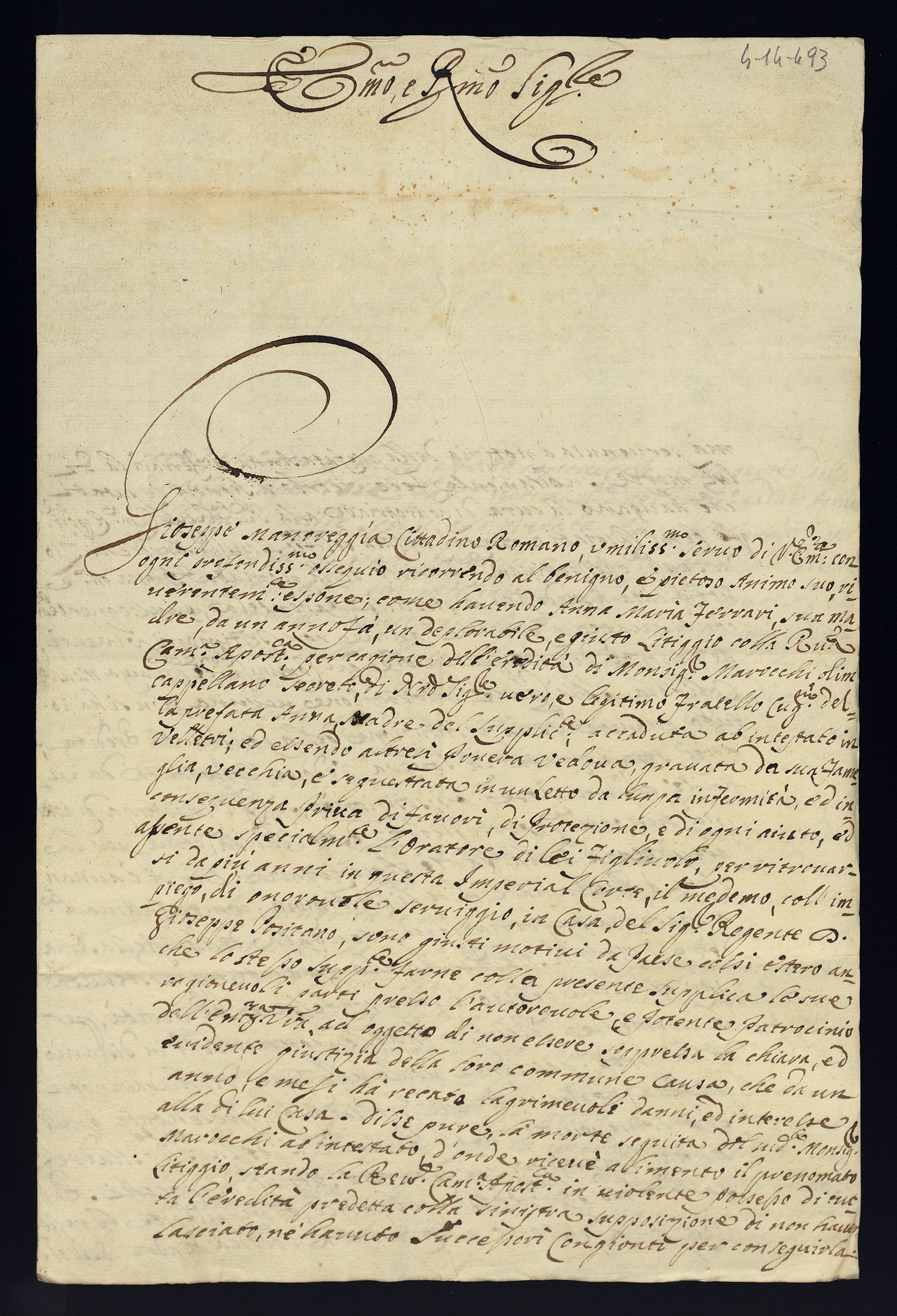 4-14-493
Em̃o, e Rm̃o Sig.re
Gioseppe Manoreggia Cittadino Romano, umiliss.mo Seruo di V.Em.za con
ogni profondiss.mo ossequio ricorrendo al benigno, e pietoso Animo suo, ri-
uerentem.te espone; come hauendo Anna Maria Ferrari, sua Ma-
dre, da un anno fà, un deplorabile, e giusto Litiggio colla Reu.da
Cam.a Apost.ca, per cagione dell'eredità di Monsig.r Marocchi olim
cappellano Secreto, di N.ro Sig.re uero, e legitimo Fratello Cug.no del-
la prefata Anna, Madre del Supplic.te, accaduta ab intestato in
Velletri; ed essendo altresì pouera Vedoua, grauata da sua Fami-
glia, vecchia, e sequestrata in un Letto da lunga infermità, ed in
conseguenza priua di fauori, di Protezione, e di ogni aiuto, ed
assente specialm.te L'Oratore di lei Figliuolo, per ritrouar-
si da più anni in questa Imperial Corte, il medemo, coll' im-
piego, di onoreuole seruiggio, in Casa del Sig.r Regente D.
Giuseppe Positano, sono giusti motiui da Paese colsi estero an-
che lo stesso Supp.te farne colla presente supplica le sue
ragioneuoli parti presso l'autoreuole, e Potente Patrocinio
dell'Em.za V.ra, ad oggetto di non essere soppressa la chiara, ed
euidente giustizia della loro commune Causa, che da un
anno, e mesi hà recato lagrimeuoli danni, ed interesse
alla di lui Casa. Disse pure, la morte seguita del sud.o Monsig.r
Marocchi ab intestato, d'onde riceuè alimento il prenomato
Litiggio, stando la Reu.da Cam.a Apost.ca in uiolente possesso di tut-
ta l'eredità predetta colla sinistra supposizione di non hauer
lasciato, nè hauuto Successori Congionti per conseguirla.